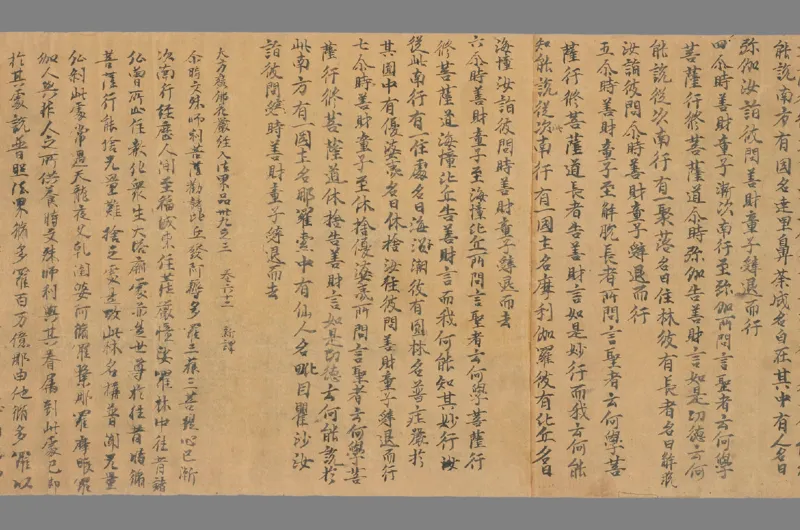 能說南方有國名達里鼻荼城名自在其中有人名曰
弥伽汝詣彼問善財童子辭退而行
四尒時善財童子漸次南行至弥伽所問言聖者云何學
菩薩行修菩薩道尒時弥伽告善財言如是功德云何
能說從次南行有一聚落名曰住林彼有長者名曰解脫
汝詣彼問尒時善財童子辭退而行
五尒時善財童子至解脫長者所問言聖者云何學菩
薩行修菩薩道長者告善財言如是妙行而我云何能
知能說從次南行有一國土名摩利伽羅彼有比丘名曰
海幢汝詣彼問時善財童子辭退而去
六尒時善財童子至海幢比丘所問言聖者云何學菩薩行
修菩薩道海幢比丘告善財言而我何能知其妙行汝
從此南行有一住處名曰海潮彼有園林名普莊嚴於
其國中有優婆夷名曰休捨汝往彼問善財童子辭退而行
七尒時善財童子至休捨優婆夷所問言聖者云何學菩
薩行修菩薩道休捨告善財言如是功德云何能說於
此南方有一國土名那羅素中有仙人名毗目瞿沙汝
詣彼問時善財童子辭退而去
大方廣佛花嚴經入法界品卅九之三 卷六十二 新譯
尒時文殊師利菩薩勸諸比丘發阿耨多羅三藐三菩提心已漸
次南行經歷人間至福城東住莊嚴幢娑羅林中往昔諸
佛曾所止住教化衆生大塔廟處亦是世尊於往昔時修
菩薩行能捨无量難捨之處是故此林名稱普聞无量
佛剎此處常為天龍夜叉乹闥婆阿脩羅緊那羅摩睺羅
伽人與非人之所供養時文殊師利與其眷屬到此處已即
於其處說普照法界脩多羅百万億那由他脩多羅以